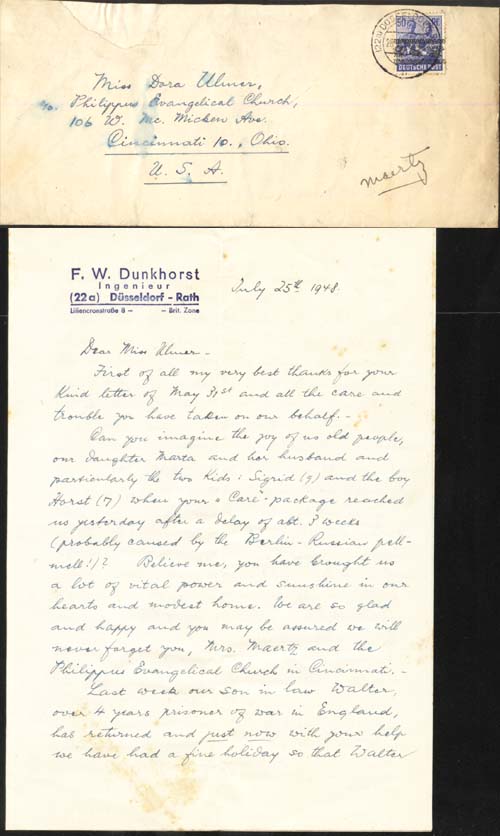 Miss Dora Ulmer,
c/o. Philippus Evangelical Church,
106 W. Mc. Micken Ave.
Cincinnati 10., Ohio.
U. S. A.
Maertz
50
DEUTSCHE POST
F. W. Dunkhorst
Ingenieur
(22a) Düsseldorf - Rath
Liliencronstraße 8 – – Brit. Zone
July 25th 1948.
Dear Miss Ulmer –
First of all my very best thanks for your
kind letter of May 31st and all the care and
trouble you have taken on our behalf. –
Can you imagine the joy of us old people,
our daughter Marta and her husband and
particularly the two kids: Sigrid (9) and the boy
Horst (7) when your "Care"-package reached
us yesterday after a delay of abt. 3 weeks
(probably caused by the Berlin-Russian pell-
mell!)? Believe me, you have brought us
a lot of vital power and sunshine in our
hearts and modest home. We are so glad
and happy and you may be assured we will
never forget you, Mrs. Maertz and the
Philippus Evangelical Church in Cincinnati. –
Last week our son in law Walter,
over 4 years prisoner of war in England,
has returned and just now with your help
we have had a fine holiday so that Walter